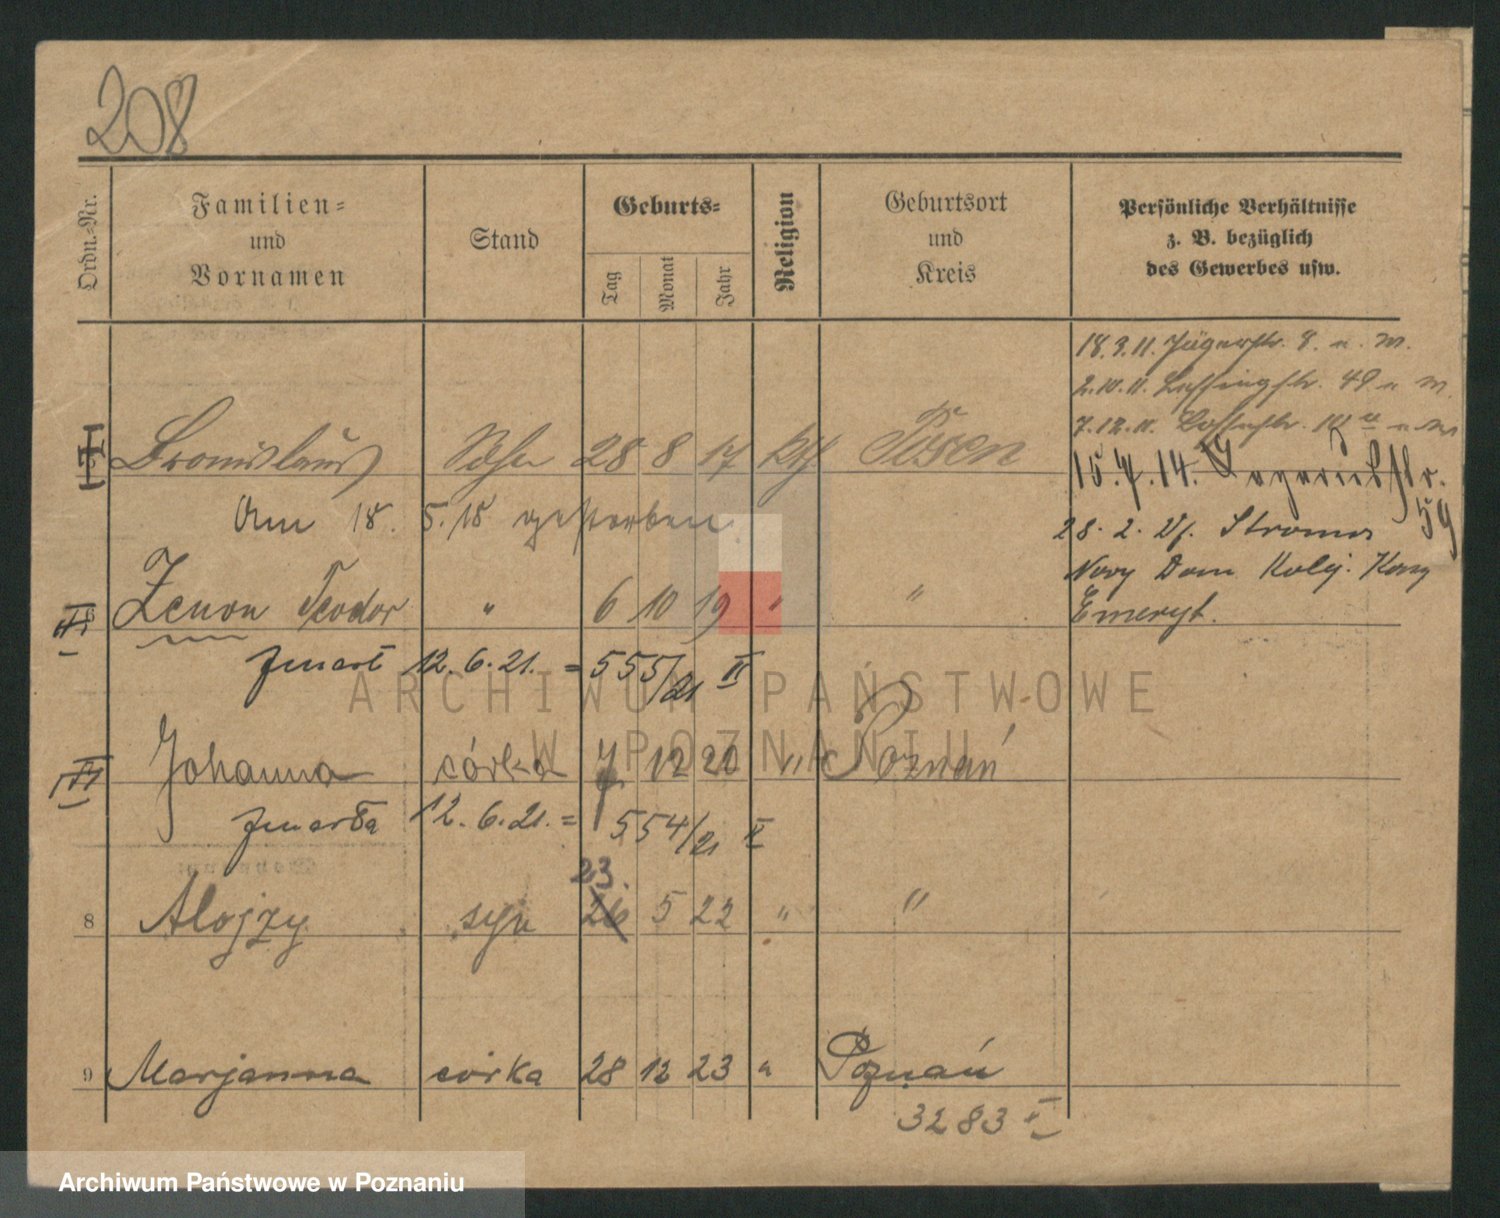 208
Ordn.-Nr. Familien- und Vornamen Stand Geburts- Tag Monat Jahr Religion Geburtsort und Kreis Persönliche Verhältnisse z. B. bezüglich des Gewerbes usw.
18.3.11. Jägerstr. 8. u. M.
2.10.11. Lessingstr. 49 u M.
7.12.11.
Bronislaus Sohn 28 8 17 kth Posen
15.4.14.
59
Am 18. 5.18 gestorben
28. 2. 21. Stroma
Nowy Dom Kolej.
Emeryt.
6 Zenon Teodor " 6 10 19 " "
zmarł 12.6.21. = 555/21 II
Johanna córka 7 12 20 " Poznań
zmarła 12.6.21. = 554/21 II
23.
8 Alojzy syn 26 5 22 " "
9 Marjanna córka 28 12 23 " Poznań
3283 II
ARCHIWUM PAŃSTWOWE
W POZNANIU
Archiwum Państwowe w Poznaniu